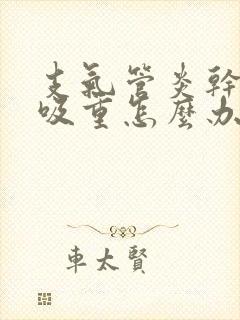 支氣管炎幹
吸重怎麼办
車太賢